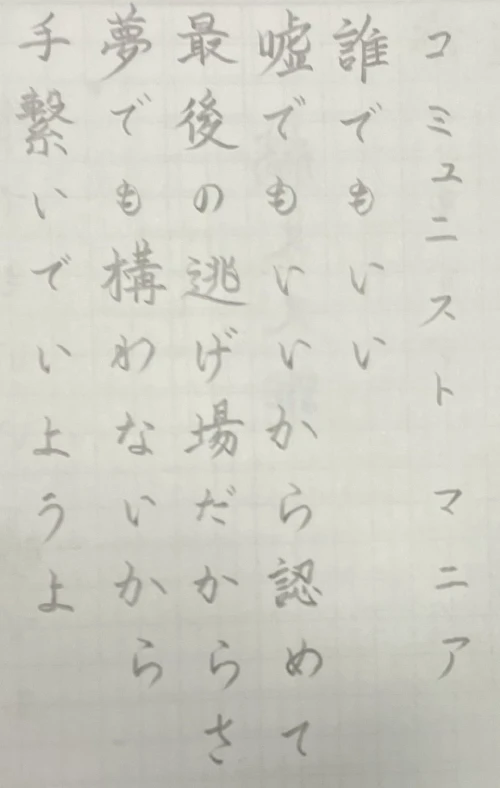 コミュニスト マニア
誰でもいい
嘘でもいいから認めて
最後の逃げ場だからさ
夢でも構わないから
手繋いでいようよ